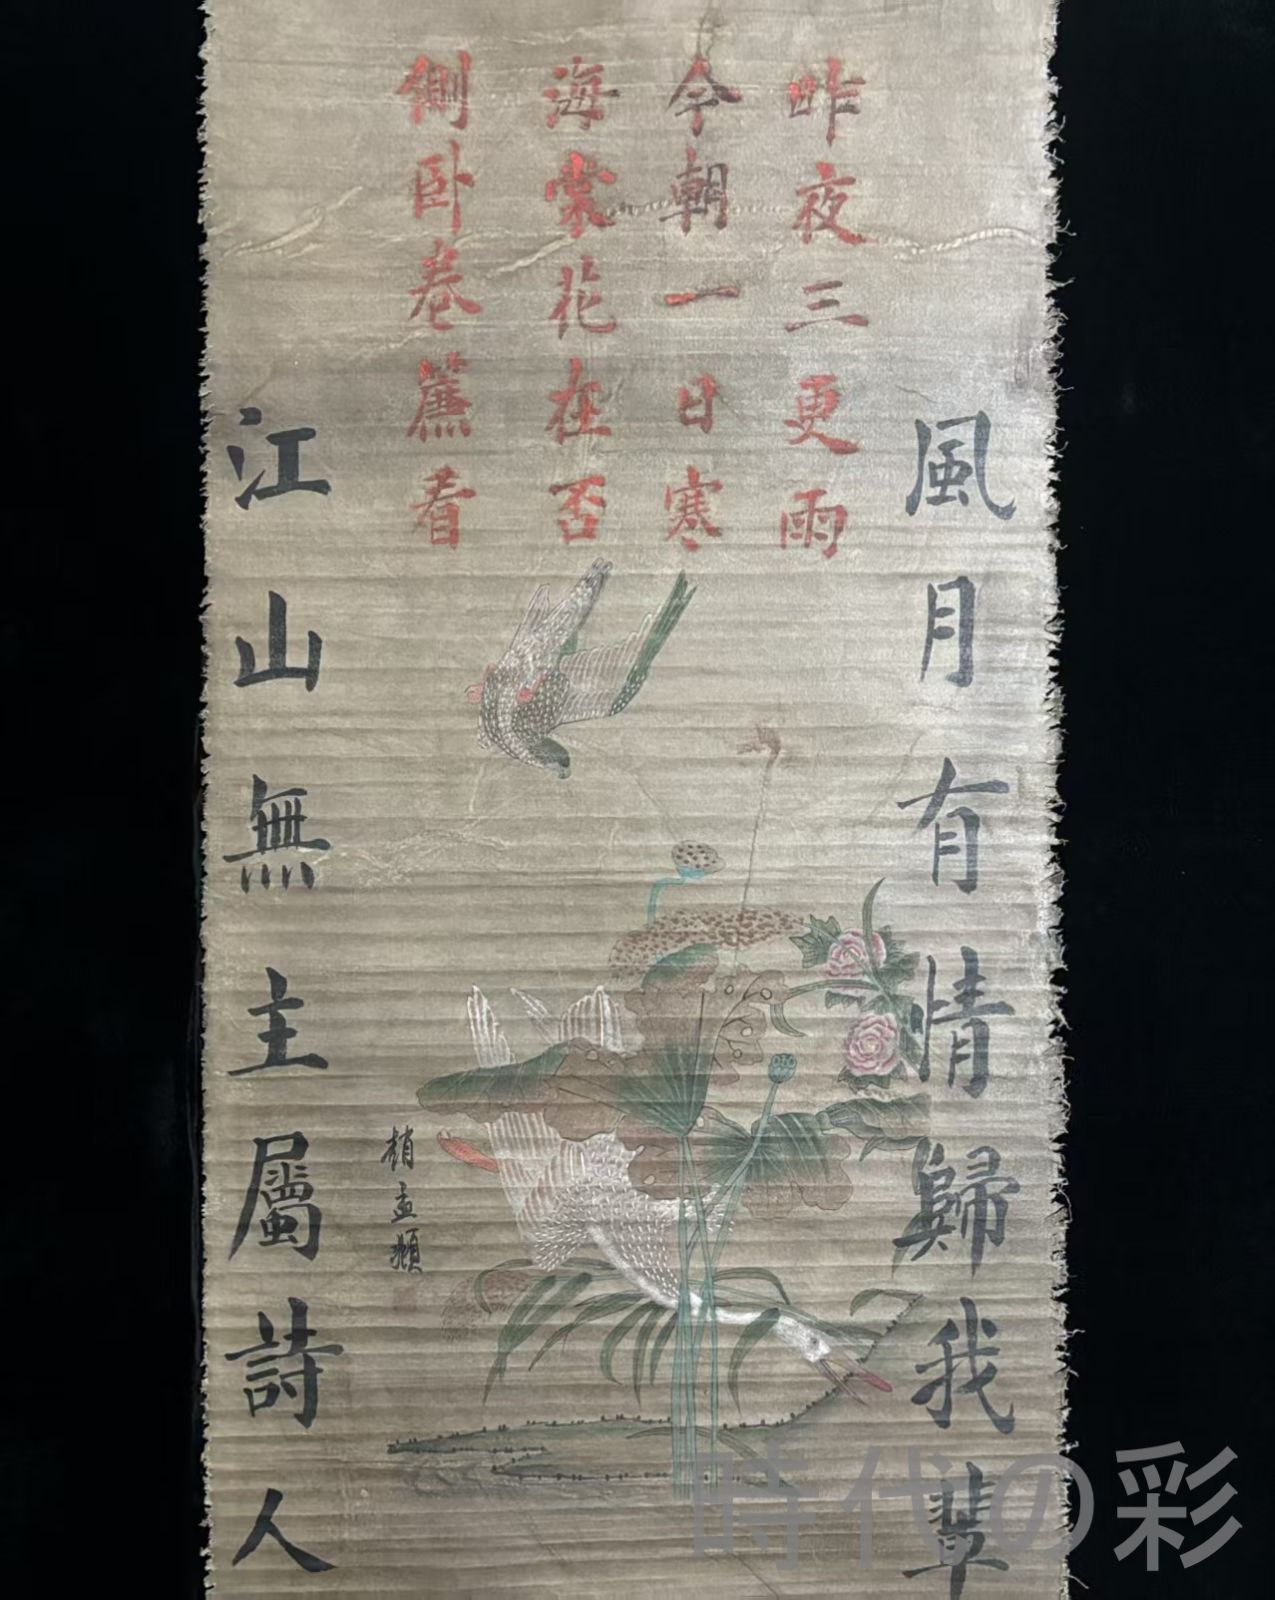 昨夜三更雨
今朝一日寒
海棠花在否
側卧卷簾看
風月有情歸我輩
江山無主屬詩人
趙孟頫
時代の彩